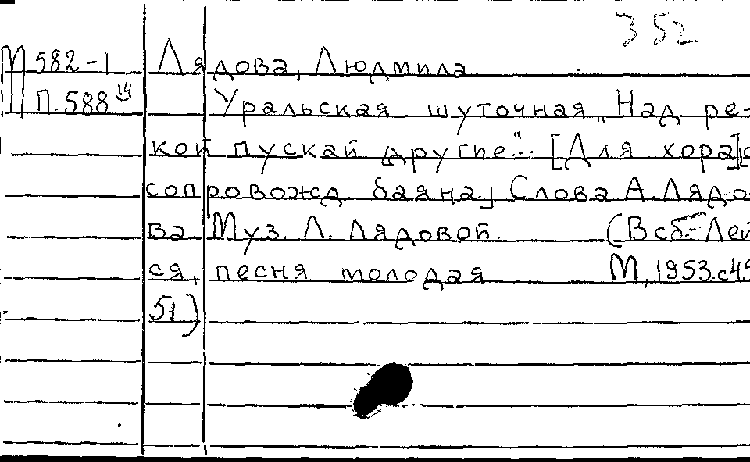 352
М 582-1 Лядова, Людмила
П.588 Уральская шуточная „Над ре-
кой пускай другие"... [Для хора] с
сопровожд баяна] Слова А. Лядо-
ва Муз. Л. Лядовой. (В сб.-Лей
ся, песня молодая М., 1953. с 49
51)